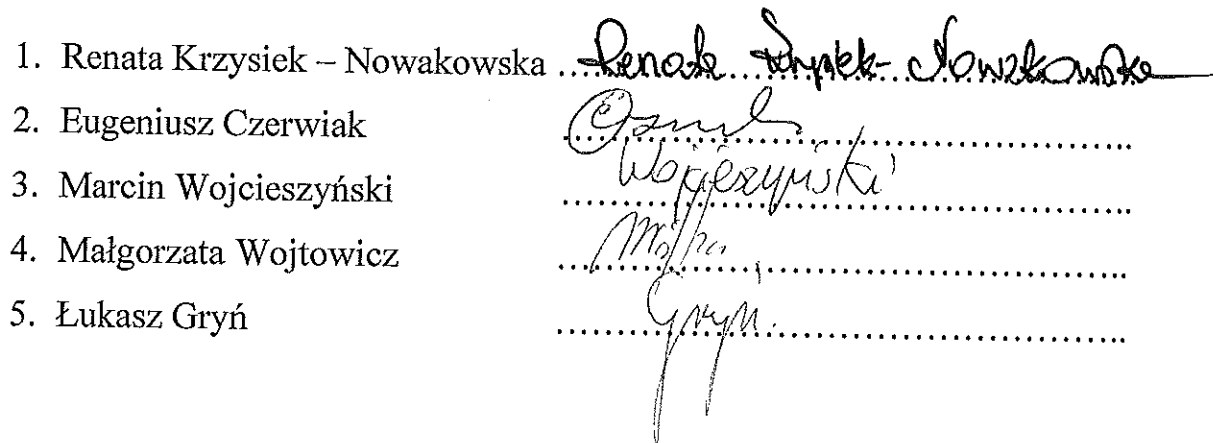 1. Renata Krzysiek – Nowakowska ....Renata Krzysiek-Nowakowska
2. Eugeniusz Czerwiak ........................................
3. Marcin Wojcieszyński Wojcieszyński
4. Małgorzata Wojtowicz ........................................
5. Łukasz Gryń Gryń.